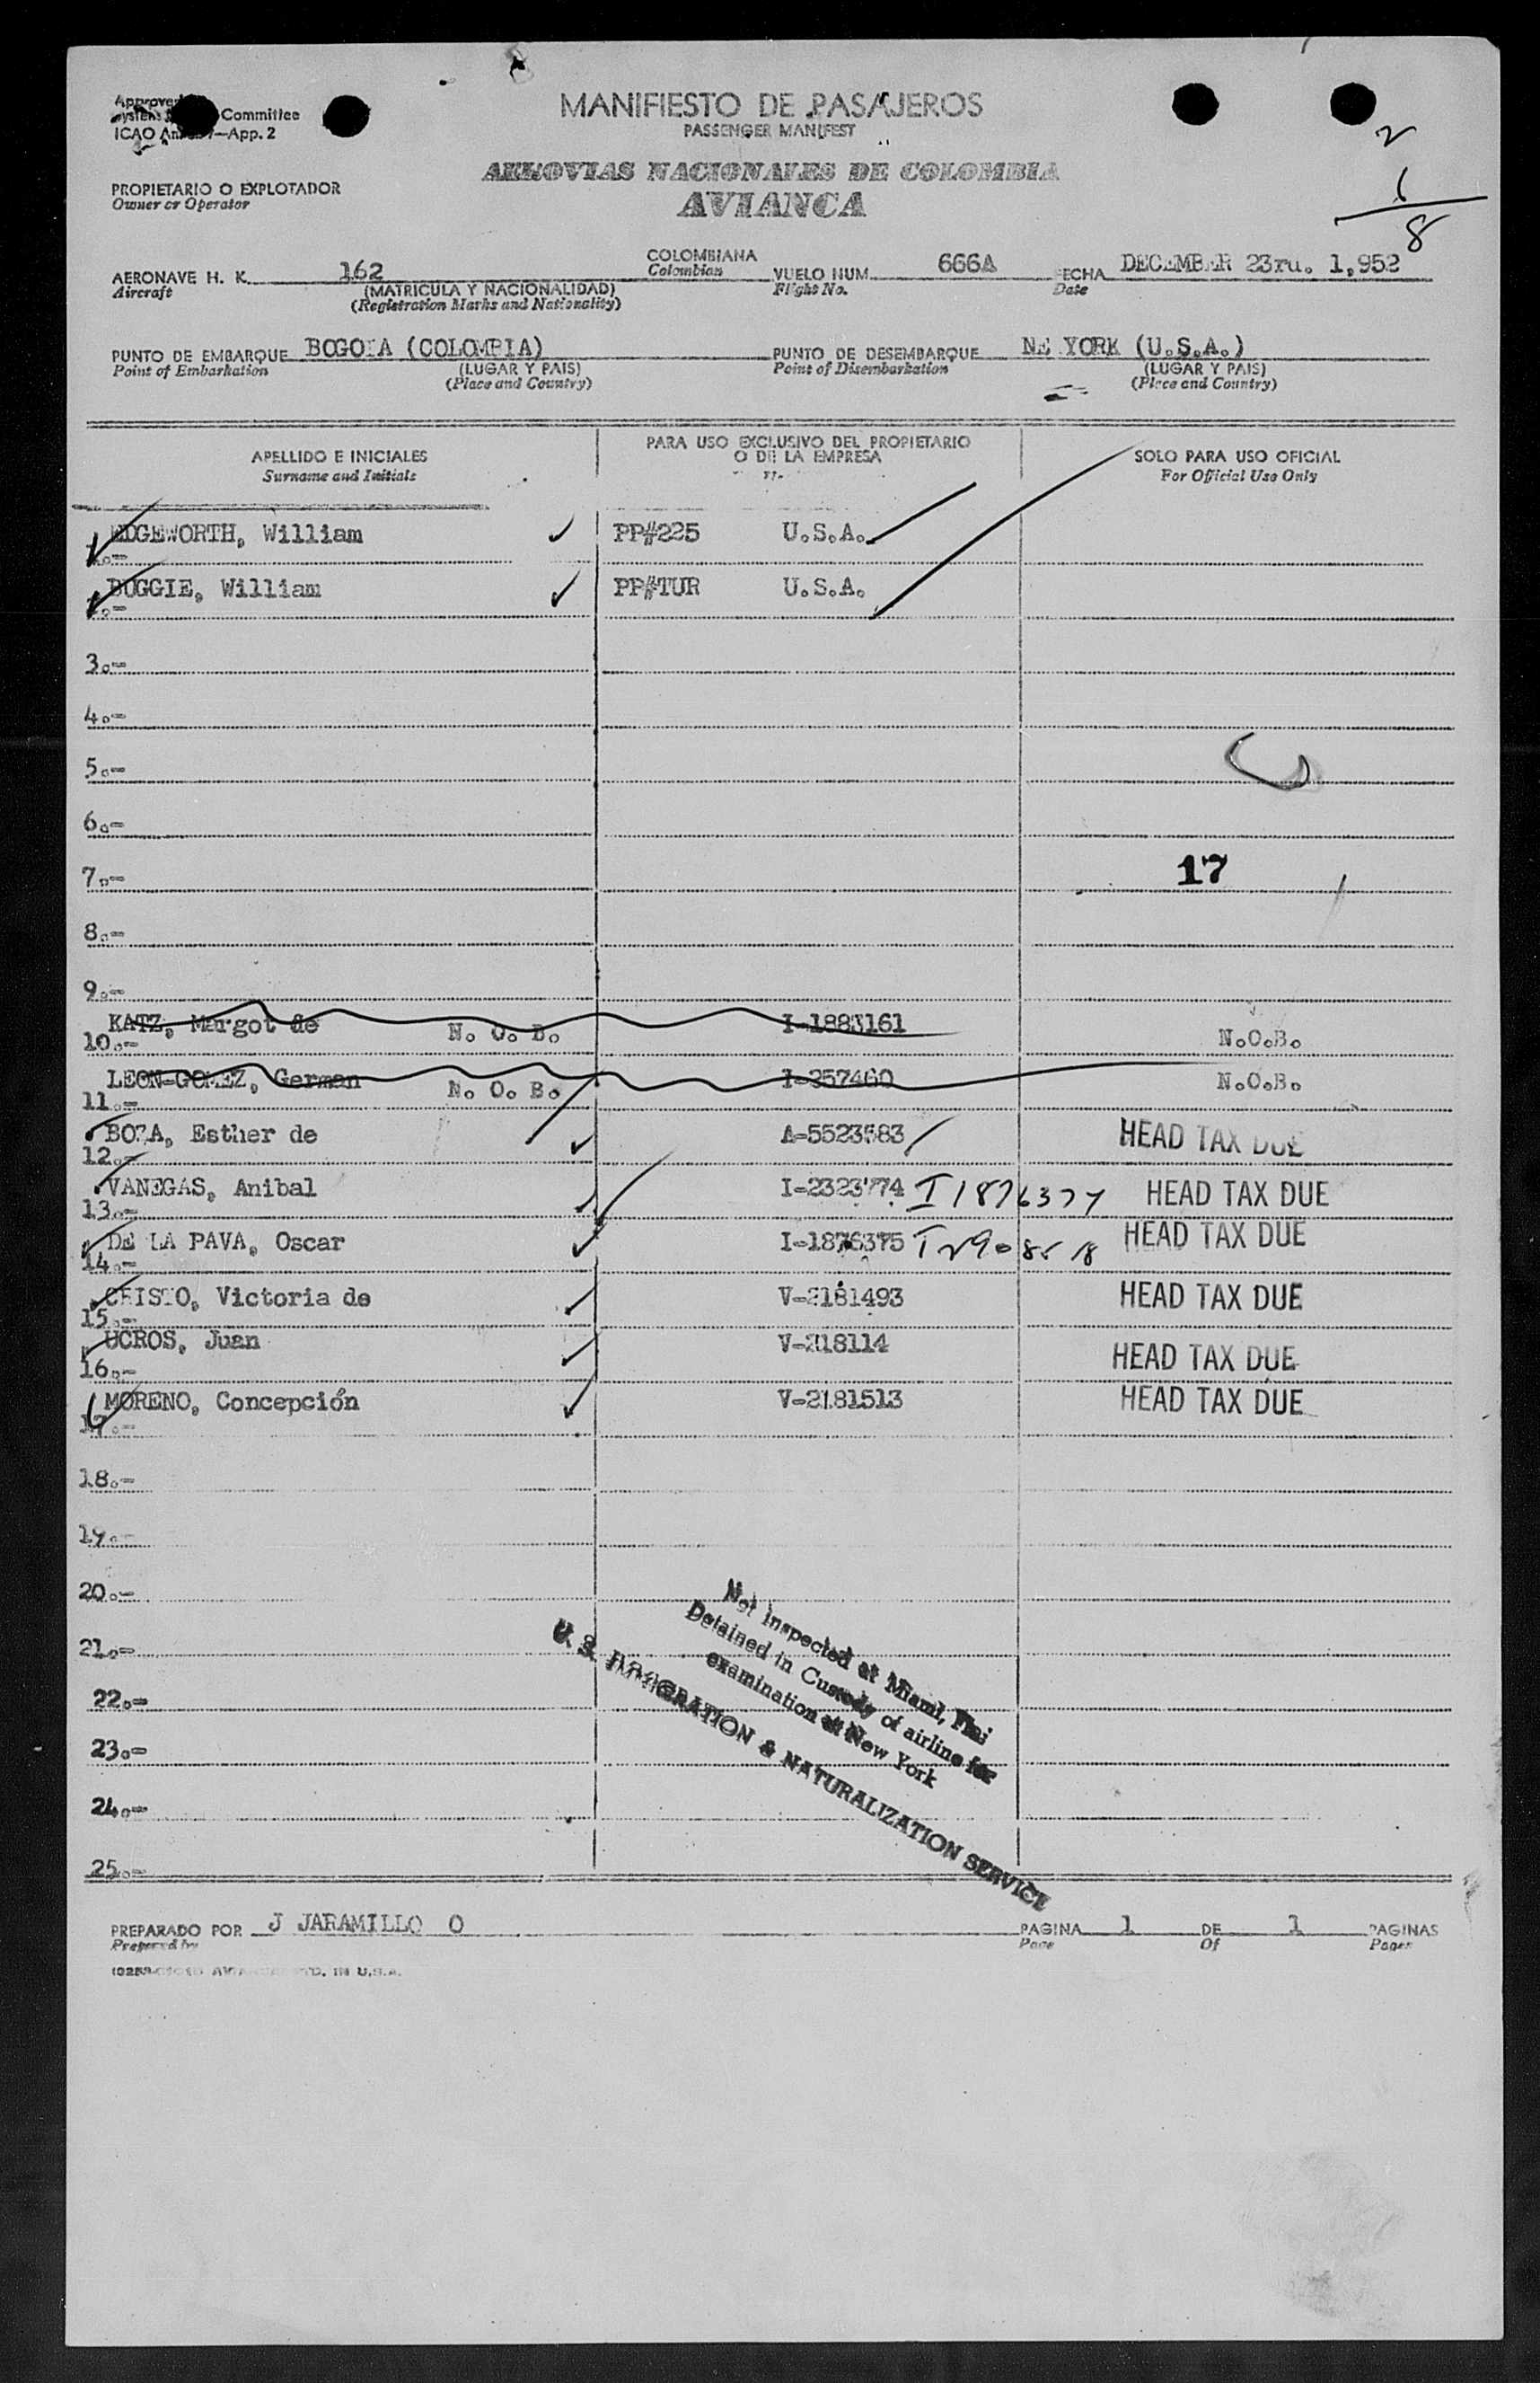 Approved
System Committee
ICAO Annex 9—App. 2
MANIFIESTO DE PASAJEROS
PASSENGER MANIFEST
2
6
8
AEROVIAS NACIONALES DE COLOMBIA
AVIANCA
PROPIETARIO O EXPLOTADOR
Owner or Operator
AERONAVE H. K. 162 COLOMBIANA VUELO NUM. 666A FECHA DECEMBER 23ru. 1,952
Aircraft (MATRICULA Y NACIONALIDAD) Colombian Flight No. Date
(Registration Marks and Nationality)
PUNTO DE EMBARQUE BOGOTA (COLOMBIA) PUNTO DE DESEMBARQUE NE YORK (U.S.A.)
Point of Embarkation (LUGAR Y PAIS) Point of Disembarkation (LUGAR Y PAIS)
(Place and Country) (Place and Country)
APELLIDO E INICIALES PARA USO EXCLUSIVO DEL PROPIETARIO O DE LA EMPRESA SOLO PARA USO OFICIAL
Surname and Initials For Official Use Only
EDGEWORTH, William PP#225 U.S.A.
1.-
BOGGIE, William PP#TUR U.S.A.
2.-
3.-
4.-
5.-
6.-
7.- 17
8.-
9.-
KATZ, Margot de N. O. B. I-1883161 N.O.B.
10.-
LEON-GOMEZ, German N. O. B. I-257460 N.O.B.
11.-
BOZA, Esther de A-5523583 HEAD TAX DUE
12.-
VANEGAS, Anibal I-2323774 I1876377 HEAD TAX DUE
13.-
DE LA PAVA, Oscar I-1876375 I2908518 HEAD TAX DUE
14.-
CRISTO, Victoria de V-2181493 HEAD TAX DUE
15.-
UCROS, Juan V-218114 HEAD TAX DUE
16.-
MORENO, Concepción V-2181513 HEAD TAX DUE
17.-
18.-
19.-
20.-
21.-
22.-
23.-
24.-
25.-
Not inspected at Miami, Fla
Detained in Custody of airline for
examination at New York
U. S. IMMIGRATION & NATURALIZATION SERVICE
PREPARADO POR J JARAMILLO O PAGINA 1 DE 1 PAGINAS
Prepared by Page Of Pages
IN U.S.A.